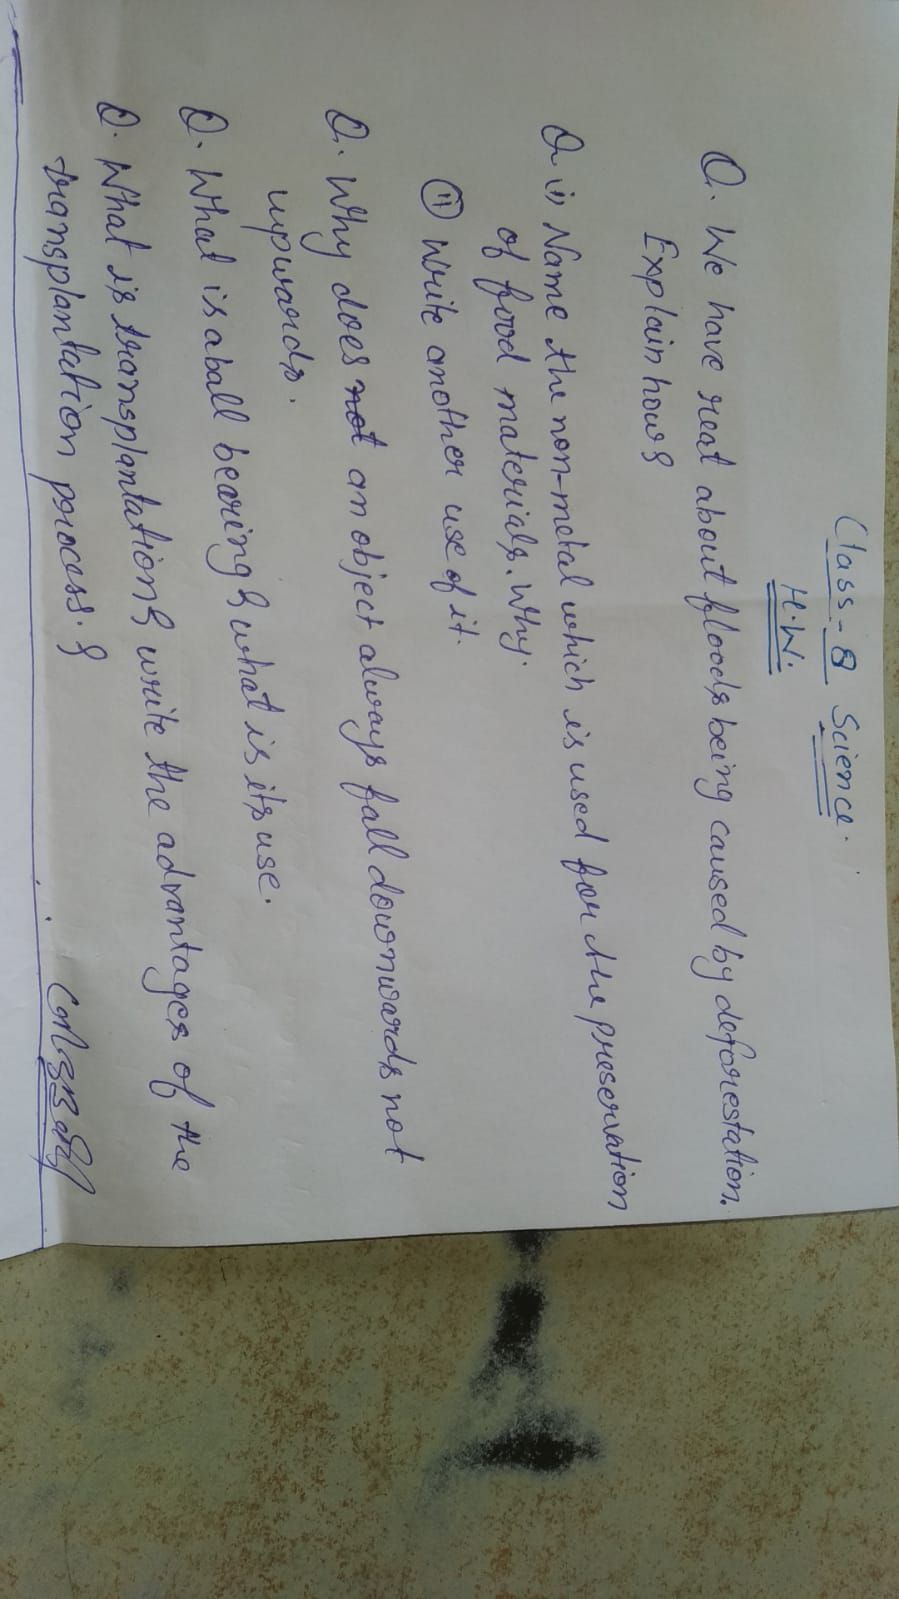 Class-8 Science.
H.W.
Q. We have reat about floods being caused by deforestation.
Explain how?
Q. i) Name the non-metal which is used for the preservation
of food materials. Why.
(ii) Write another use of it.
Q. Why does not an object always fall downwards not
upwards.
Q. What is a ball bearing? what is its use.
Q. What is transplantation? write the advantages of the
transplantation process.?